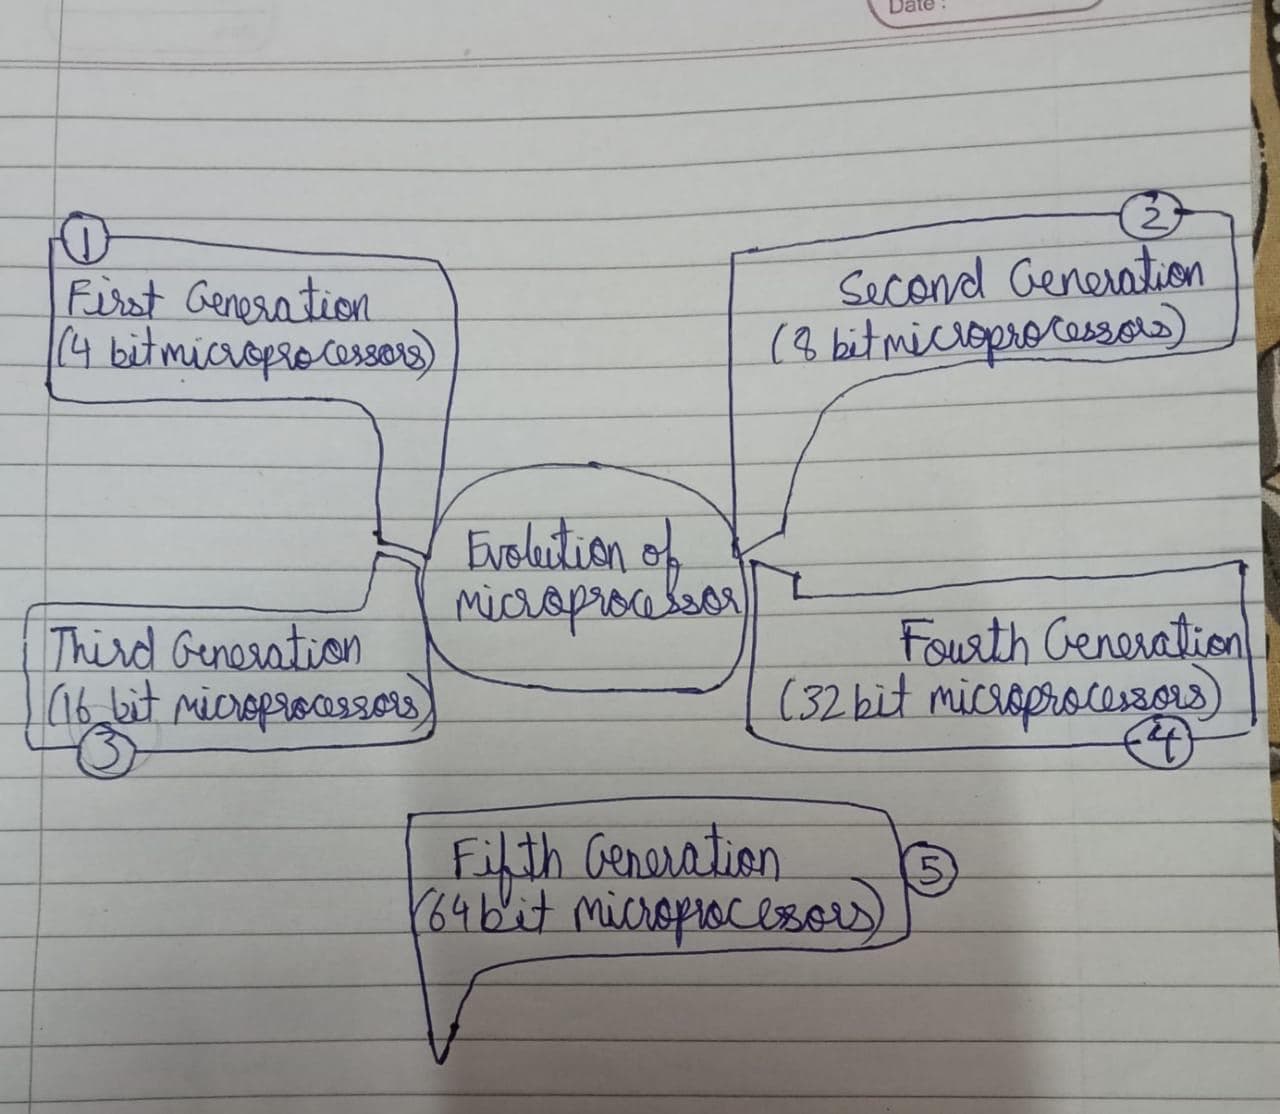 Date :
1
First Generation
(4 bit microprocessors)
2
Second Generation
(8 bit microprocessors)
Evolution of
microprocessor
Third Generation
(16 bit microprocessors)
3
Fourth Generation
(32 bit microprocessors)
4
Fifth Generation
(64 bit microprocessors)
5